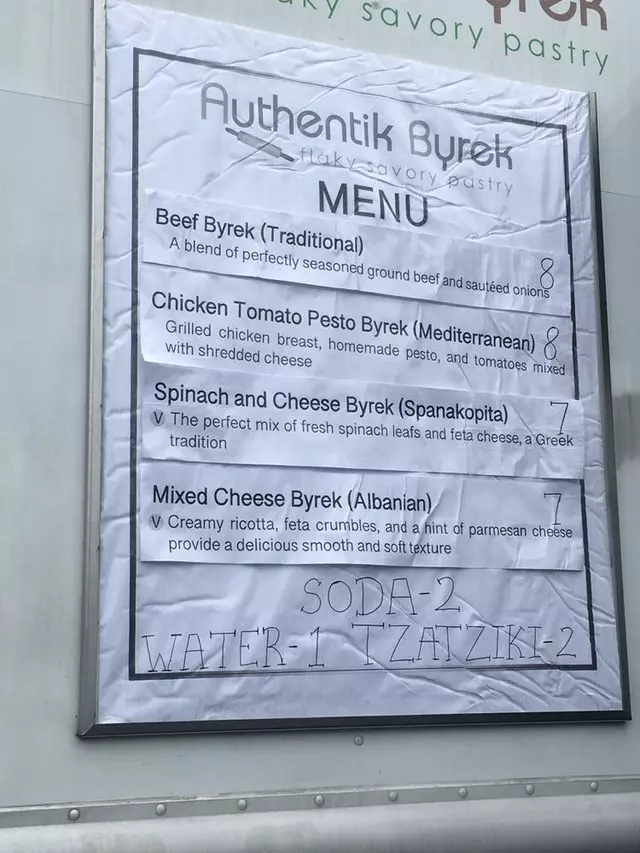 savory pastry
Authentik Byrek
flaky savory pastry
MENU
Beef Byrek (Traditional)
A blend of perfectly seasoned ground beef and sautéed onions 8
Chicken Tomato Pesto Byrek (Mediterranean) 8
Grilled chicken breast, homemade pesto, and tomatoes mixed
with shredded cheese
Spinach and Cheese Byrek (Spanakopita) 7
V The perfect mix of fresh spinach leafs and feta cheese, a Greek
tradition
Mixed Cheese Byrek (Albanian) 7
V Creamy ricotta, feta crumbles, and a hint of parmesan cheese
provide a delicious smooth and soft texture
SODA-2
WATER-1 TZATZIKI-2